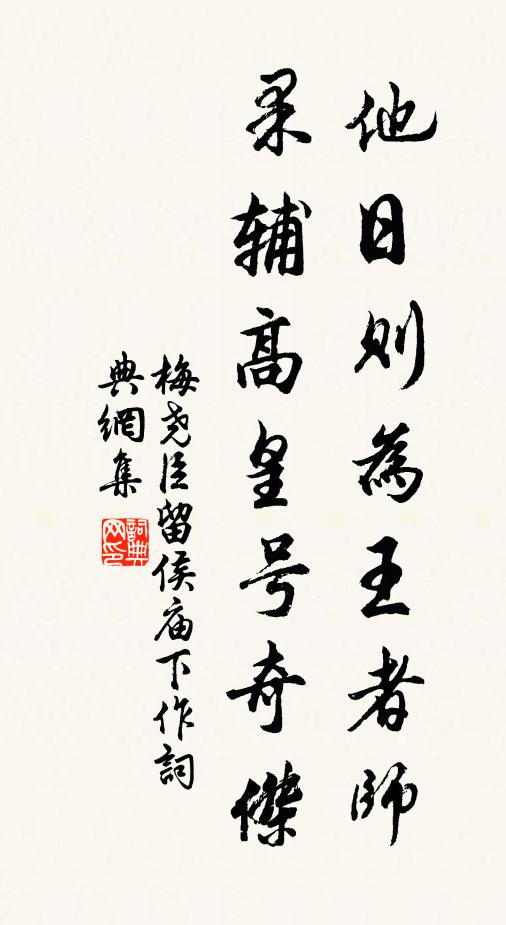 他日则為王者師
果辅高皇号奇傑
梅尧臣留侯庙下作詞
典網集
詞典网印